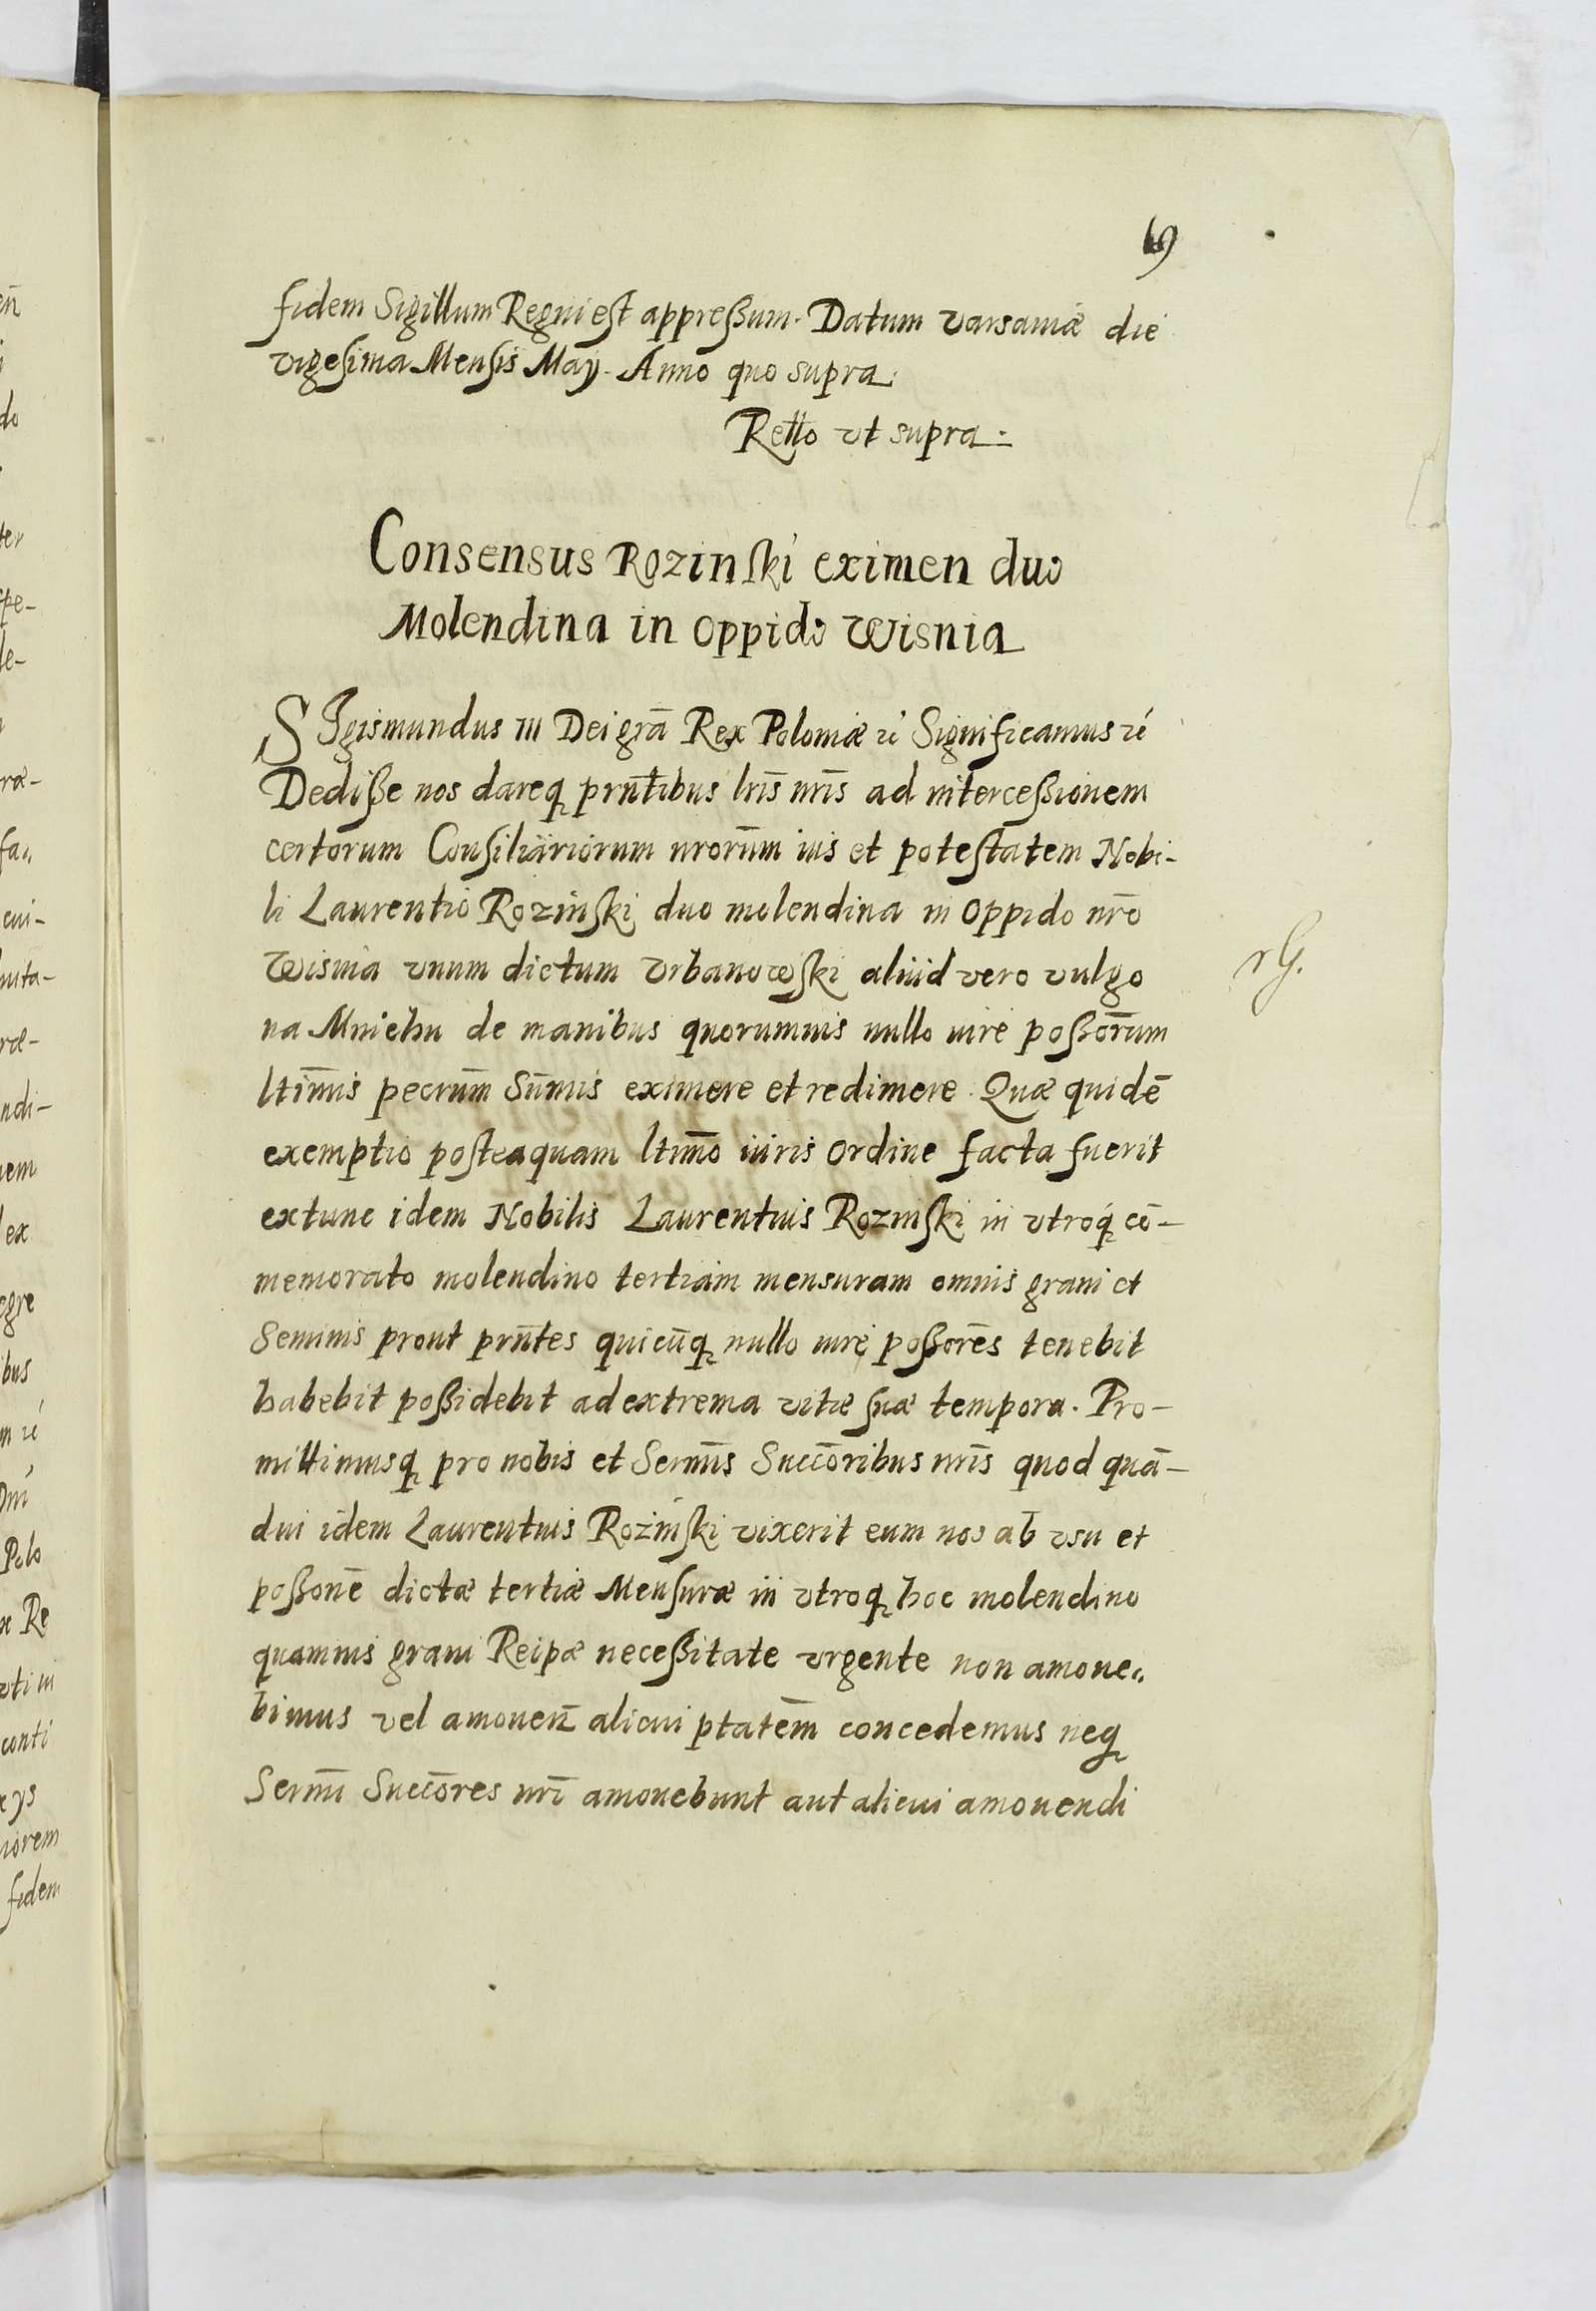 69
fidem Sigillum Regni est appreßum. Datum varsaviæ die
vigesima Mensis Maÿ. Anno quo supra.
Retto vt supra.
Consensus Rozinski eximen duo
Molendina in oppido Wisnia
SIgismundus III Dei grā Rex Poloniæ zc Significamus zc
Dediße nos dareq prn̄tibus lrīs nrīs ad interceßionem
certorum Consiliariorum nrorūm ius et potestatem Nobi-
li Laurentio Rozinski duo molendina in oppido nrō
Wisnia vnum dictum Vrbanowski aliud vero vulgo
na Mnichu de manibus quorumuis nullo iure poßorūm
ltimīs pecrūm Sūmis eximere et redimere. Quæ quidē
exemptio posteaquam ltimō iuris ordine facta fuerit
extunc idem Nobilis Laurentius Rozinski in vtroq cō-
memorato molendino tertiam mensuram omnis grani et
Seminis prout prn̄tes quicūq nullo iure poßorēs tenebit
habebit poßidebit ad extrema vitæ suæ tempora. Pro-
mittimusq pro nobis et Sermīs Succōribus nrīs quod quā-
diu idem Laurentius Rozinski vixerit eum nos ab vsu et
poßonē dictæ tertiæ Mensuræ in vtroq hoc molendino
quamuis graui Reipæ neceßitate vrgente non amoue-
bimus vel amouen̄ alicui ptatēm concedemus neq
Sermī Succōres nrī amouebunt aut alicui amouendi